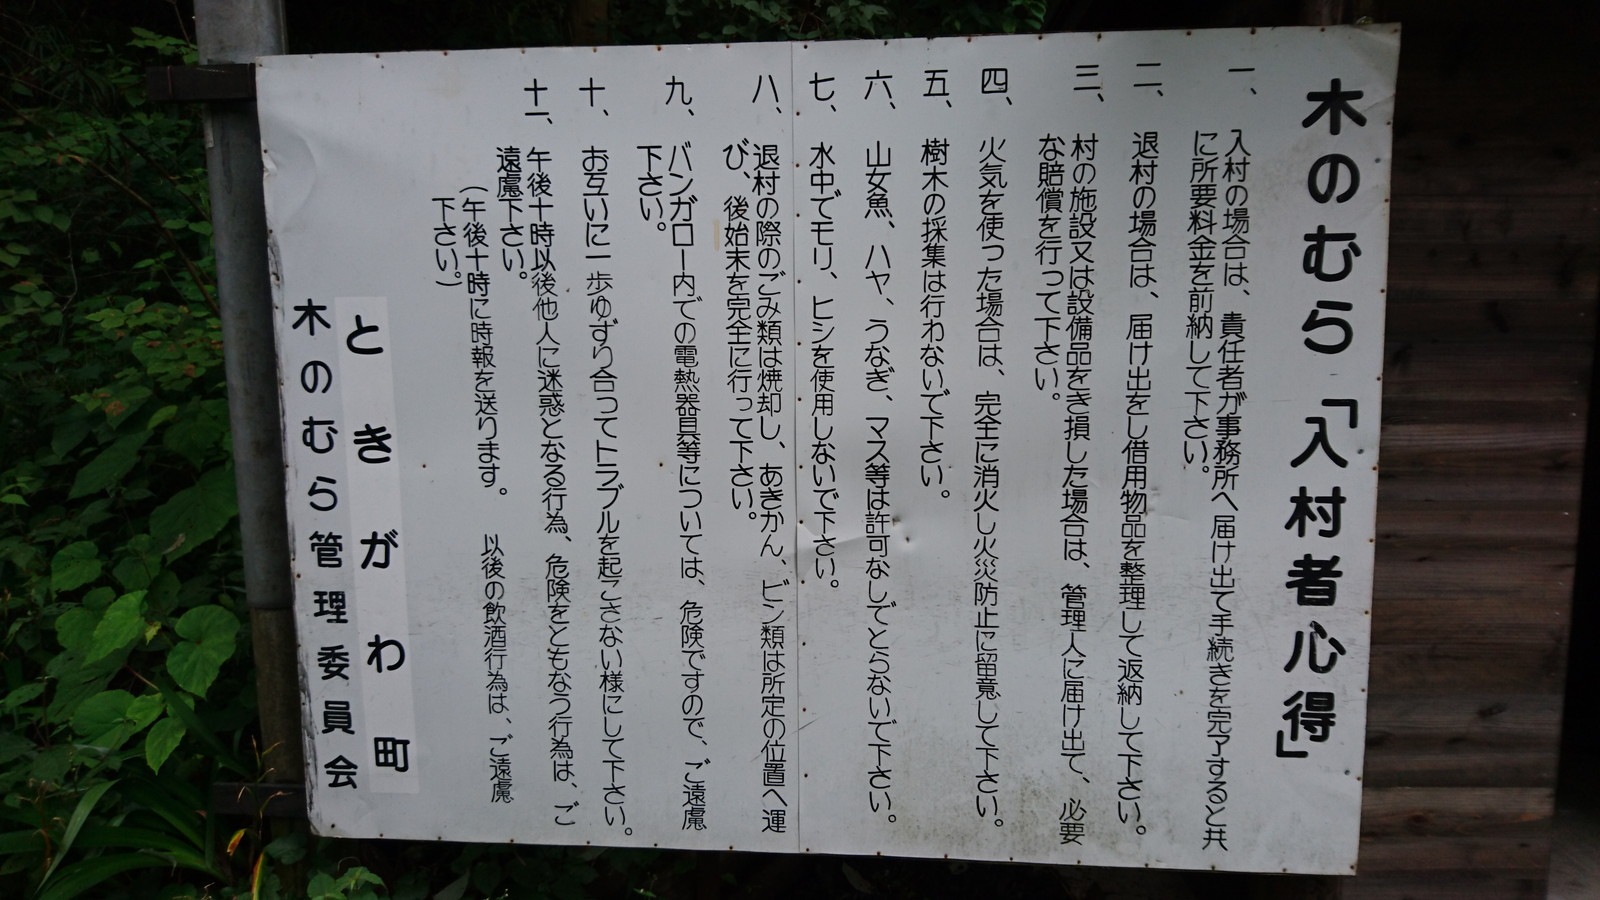 木のむら「入村者心得」
一、入村の場合は、責任者が事務所へ届け出て手続きを完了すると共
に所要料金を前納して下さい。
二、退村の場合は、届け出をし借用物品を整理して返納して下さい。
三、村の施設又は設備品をき損した場合は、管理人に届け出て、必要
な賠償を行って下さい。
四、火気を使った場合は、完全に消火し火災防止に留意して下さい。
五、樹木の採集は行わないで下さい。
六、山女魚、ハヤ、うなぎ、マス等は許可なしでとらないで下さい。
七、水中でモリ、ヒシを使用しないで下さい。
八、退村の際のごみ類は焼却し、あきかん、ビン類は所定の位置へ運
び、後始末を完全に行って下さい。
九、バンガロー内での電熱器具等については、危険ですので、ご遠慮
下さい。
十、お互いに一歩ゆずり合ってトラブルを起こさない様にして下さい。
十一、午後十時以後他人に迷惑となる行為、危険をともなう行為は、ご
遠慮下さい。
（午後十時に時報を送ります。以後の飲酒行為は、ご遠慮
下さい。）
ときがわ町
木のむら管理委員会